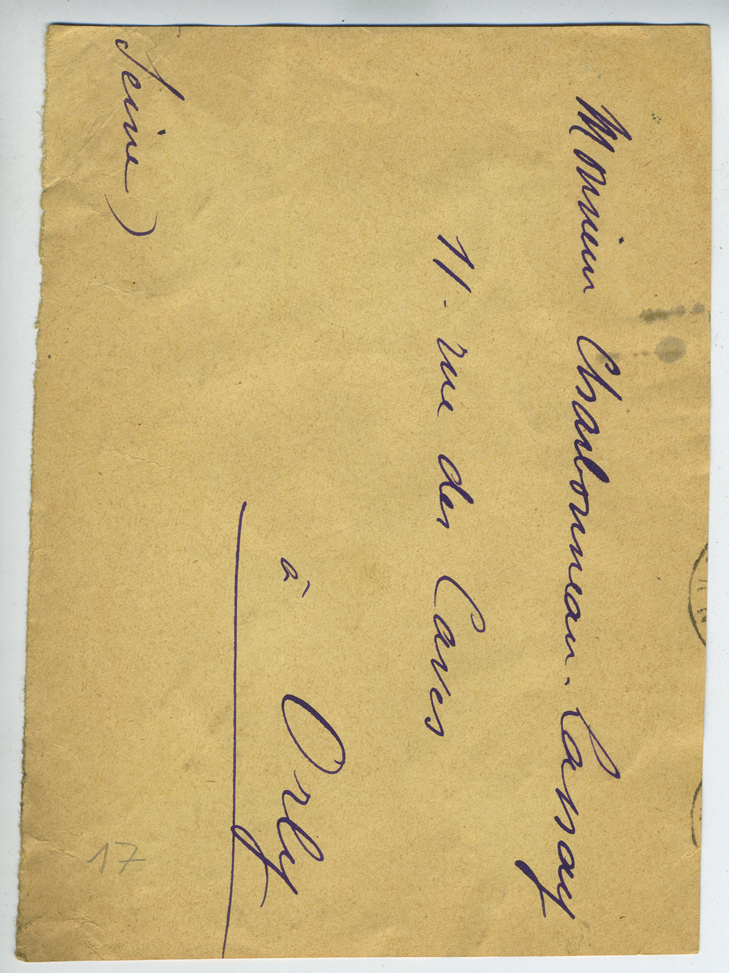 Monsieur Charbonneau-Lassay
11. rue des Caves
à Orly
Seine)
17